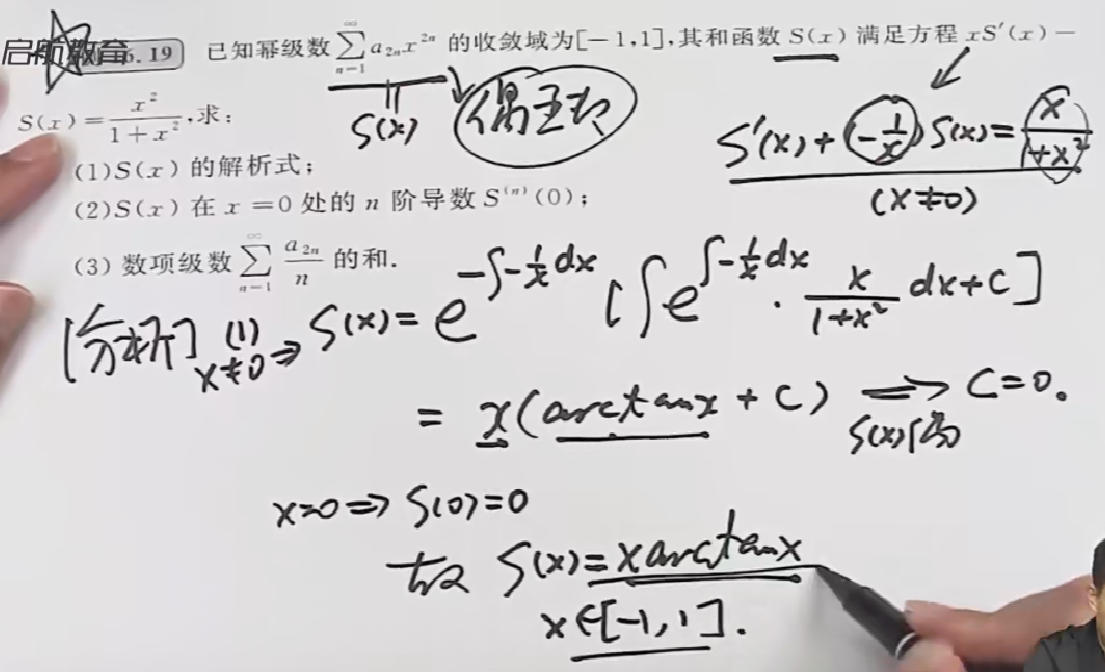 启航教育
6.19 已知幂级数 $\sum_{n=1}^{\infty} a_{2n}x^{2n}$ 的收敛域为[-1,1],其和函数 S(x) 满足方程 xS′(x) −
S(x) = $\frac{x^2}{1+x^2}$,求:
(1)S(x) 的解析式;
(2)S(x) 在 x = 0 处的 n 阶导数 $S^{(n)}(0)$;
(3) 数项级数 $\sum_{n=1}^{\infty} \frac{a_{2n}}{n}$ 的和.
S(x)
S′(x) + ($-\frac{1}{x}$) S(x) = $\frac{x}{1+x^2}$
(x≠0)
[分析] (1) x≠0 ⇒ S(x) = $e^{-\int -\frac{1}{x}dx}$ [ $\int e^{\int -\frac{1}{x}dx} \cdot \frac{x}{1+x^2}$ dx + C ]
= x(arctanx + C) ⟹ C=0。
S(x)偶
x=0 ⇒ S(0)=0
故 S(x) = xarctanx
x∈[-1,1].